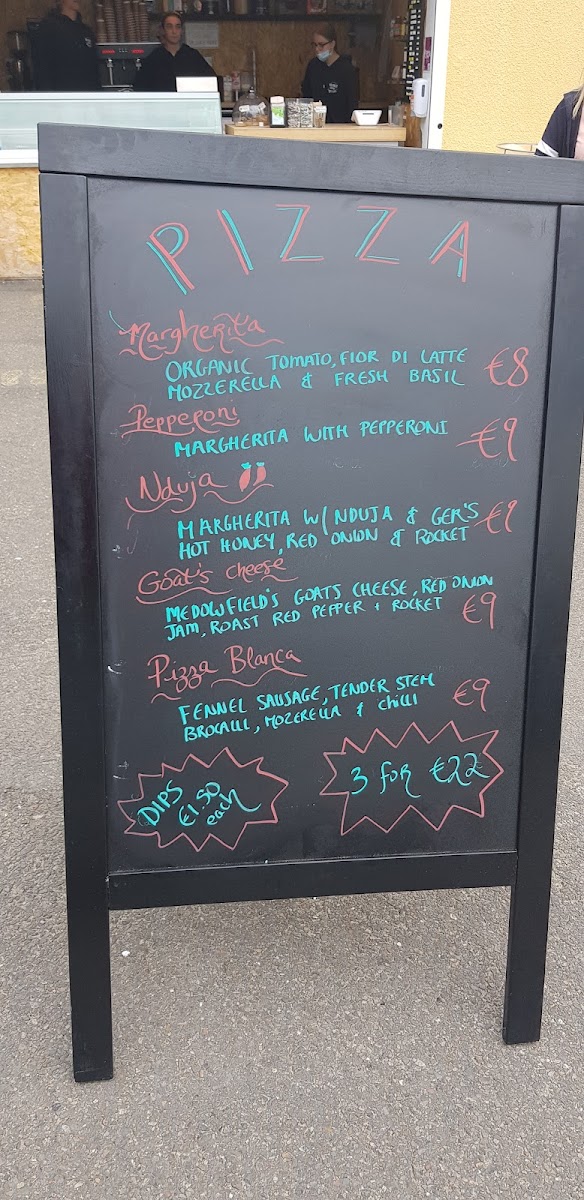 PIZZA
Margherita
ORGANIC TOMATO, FIOR DI LATTE
MOZZERELLA & FRESH BASIL
€8
Pepperoni
MARGHERITA WITH PEPPERONI
€9
Nduja
MARGHERITA W/ NDUJA & GER'S
HOT HONEY, RED ONION & ROCKET
€9
Goat's cheese
MEDOWFIELD'S GOATS CHEESE, RED ONION
JAM, ROAST RED PEPPER + ROCKET
€9
Pizza Blanca
FENNEL SAUSAGE, TENDER STEM
BROCALLI, MOZERELLA & CHILLI
€9
DIPS
€1.50
each
3 FOR €22